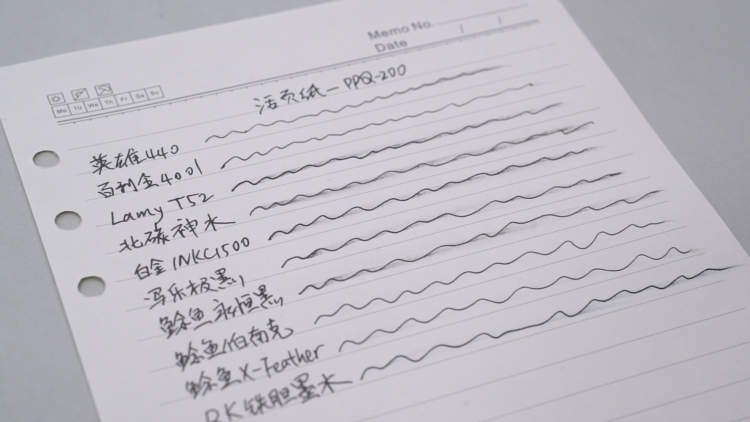 Memo No.
Date / /
Mo Tu We Th Fr Sa Su
活页纸-PPQ-200
英雄440
百利金4001
Lamy T52
北碳神水
白金INKC1500
写乐极黑
鲶鱼永恒黑
鲶鱼伯南克
鲶鱼X-Feather
RK铁胆墨水